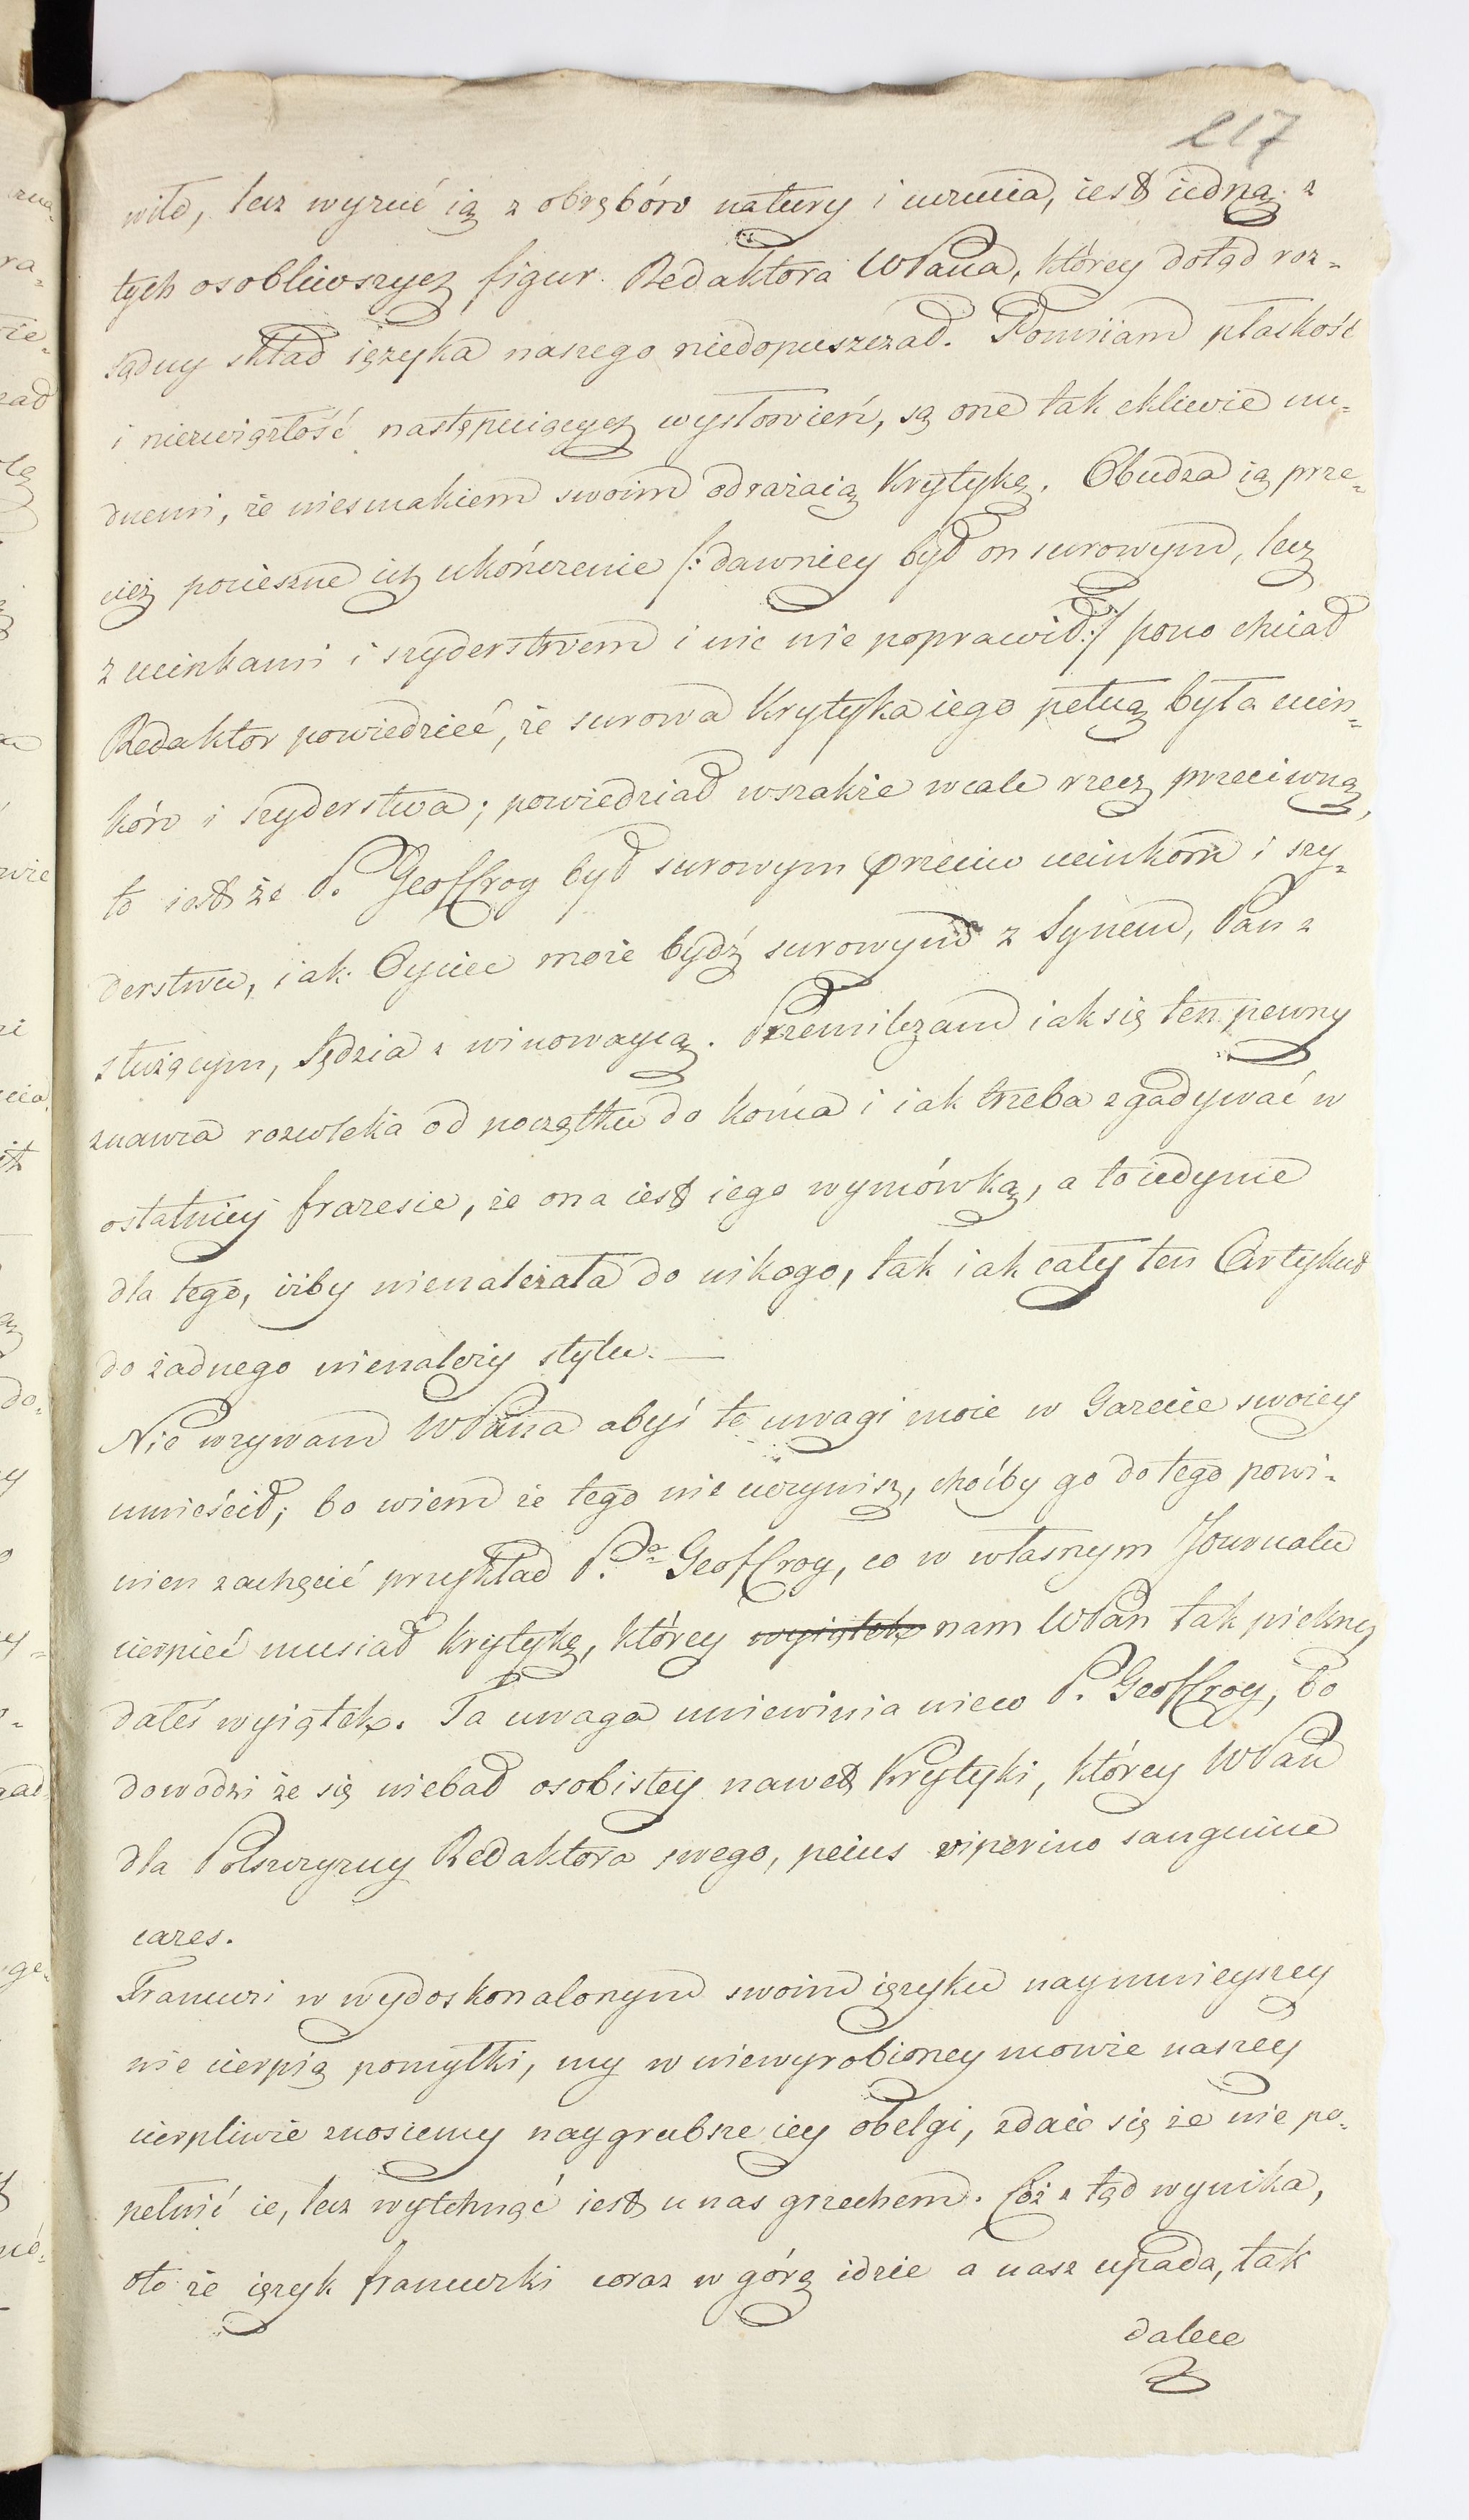 217
wite, lecz wyrzuć ią z obrębów natury i uczucia, iest iedną z
tych osobliwszych figur Redaktora WPana, którey dotąd roz-
sądny skład ięzyka naszego niedopuszczał. Pomijam płaskość
i niezwięzłość następuiących wysłowień, są one tak ckliwie nu-
dnemi, że niesmakiem swoim odrażaią Krytykę. Obudza ią prze-
cież pocieszne ich ukończenie /: dawniey był on surowym, lecz
z ucinkami i szyderstwem i nic nie poprawił :/ pono chciał
Redaktor powiedzieć, że surowa Krytyka iego pełną była ucin-
ków i szyderstwa; powiedział wszakże wcale rzecz przeciwną,
to iest że P. Geoffroy był surowym przeciw ucinkom i szy-
derstwu, iak Oyciec może bydź surowym z Synem, Pan z
służącym, Sędzia z winowaycą. Przemilczam iak się ten pewny
znawca rozwleka od początku do końca i iak trzeba zgadywać w
ostatniey frazesie, że ona iest iego wymówką, a to iedynie
dla tego, iżby nienależała do nikogo, tak iak cały ten Artykuł
do żadnego nienależy stylu. —
Nie wzywam WPana abyś te uwagi moie w Gazecie swoiey
umieścił; bo wiem że tego nie uczynisz, choćby go do tego powi-
nien zachęcić przykład P.a Geoffroy, co w własnym Journalu
cierpieć musiał krytykę, którey wyiątek nam WPan tak piękny
dałeś wyiątek. Ta uwaga uniewinia nieco P. Geoffroy, bo
dowodzi że się niebał osobistey nawet Krytyki, którey WPan
dla Polszczyzny Redaktora swego, peius viperino sanguine
cares.
Francuzi w wydoskonalonym swoim ięzyku naymnieyszey
nie cierpią pomyłki, my w niewyrobioney mowie naszey
cierpliwie znosiemy naygrubsze iey obelgi, zdaie się że nie po-
pełnić ie, lecz wytchnąć iest u nas grzechem. Cóż z tąd wynika,
oto że ięzyk francuzki coraz w górę idzie a nasz upada, tak
dalece